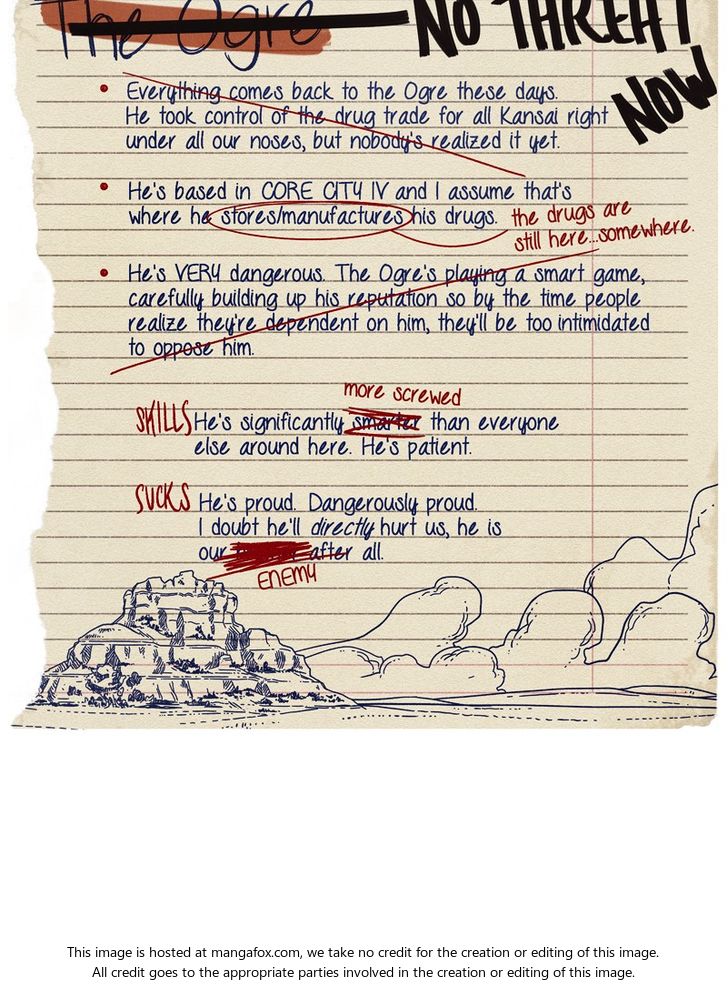 The Ogre NO THREAT
NOW
Everything comes back to the Ogre these days.
He took control of the drug trade for all Kansai right
under all our noses, but nobody's realized it yet.
He's based in CORE CITY IV and I assume that's
where he stores/manufactures his drugs. the drugs are
still here...somewhere.
He's VERY dangerous. The Ogre's playing a smart game,
carefully building up his reputation so by the time people
realize they're dependent on him, they'll be too intimidated
to oppose him.
more screwed
SKILLS He's significantly smarter than everyone
else around here. He's patient.
SUCKS He's proud. Dangerously proud.
I doubt he'll directly hurt us, he is
our after all.
ENEMY
This image is hosted at mangafox.com, we take no credit for the creation or editing of this image.
All credit goes to the appropriate parties involved in the creation or editing of this image.